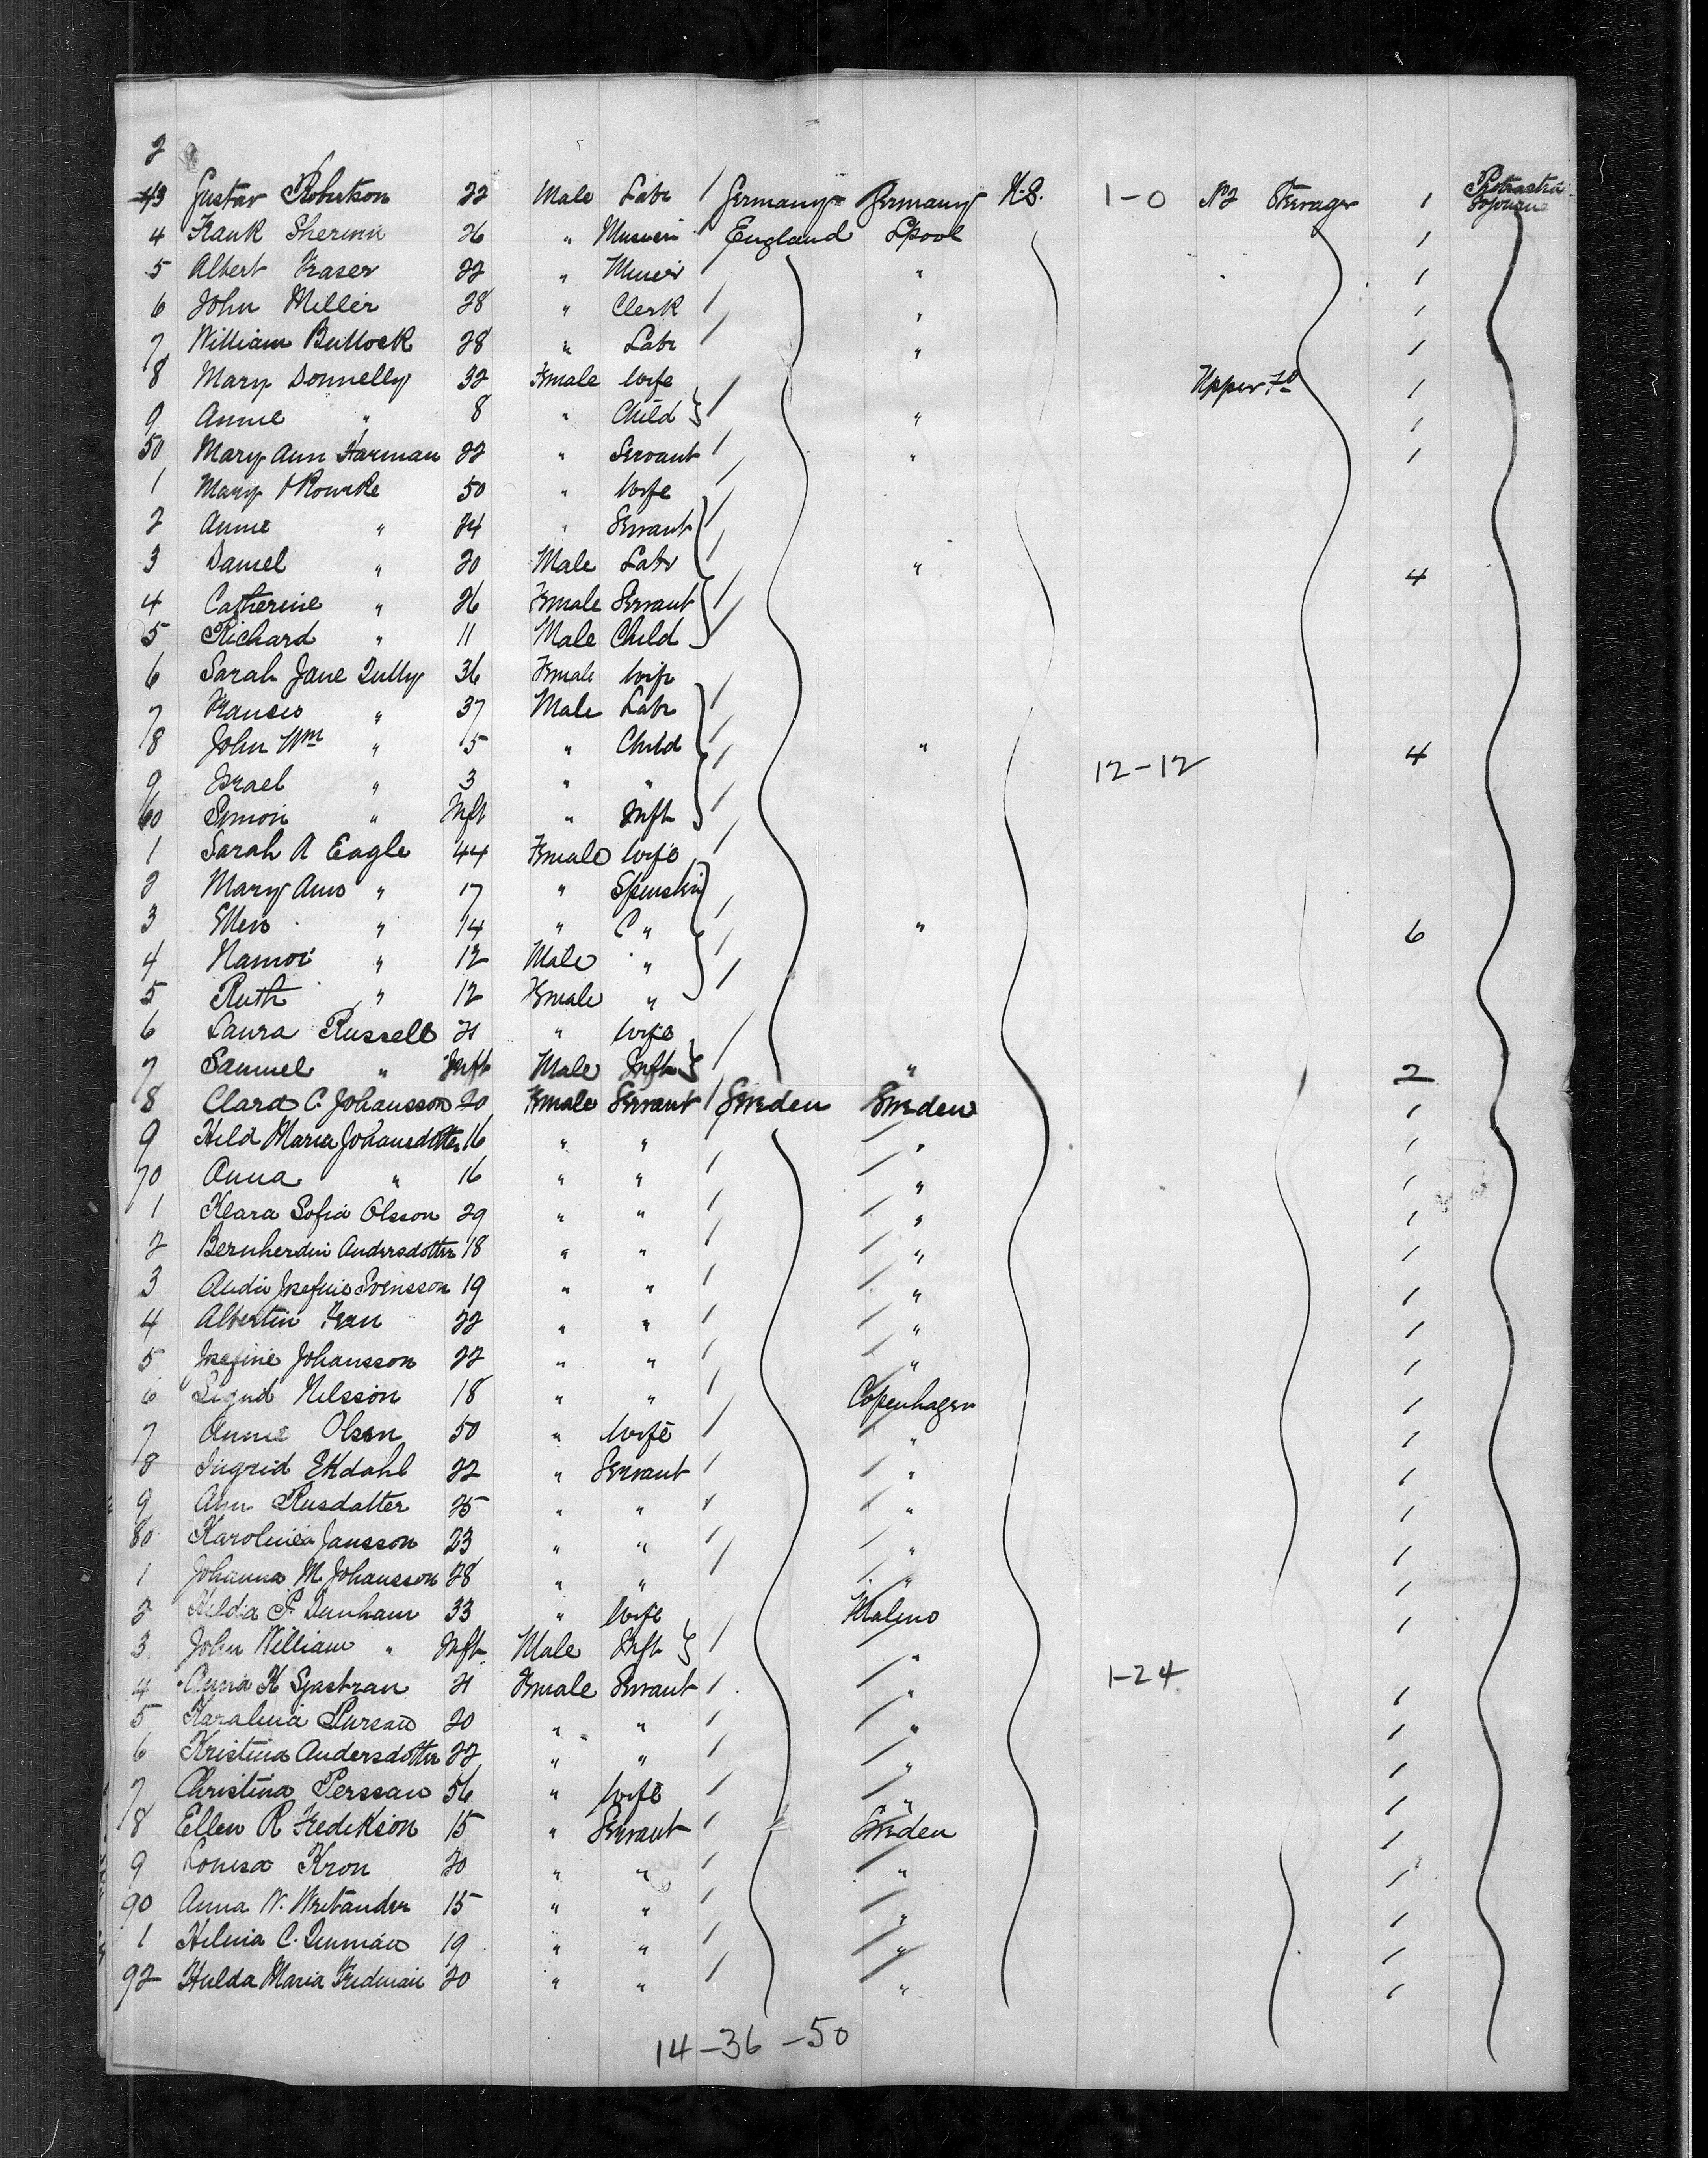 2
43 Gustav Robertson 22 Male Labr / Germany Germany U.S. 1-0 No 2 Steerage 1 Protracted Sojourn
4 Frank 26 " England Lpool 1
5 Albert Fraser 22 " / " 1
6 John Miller 28 " Clerk / " 1
7 William Bullock 28 " Labr / " 1
8 Mary Donnelly 32 Female Wife Upper 1
9 Annie " 8 " Child } / " 1
50 Mary Ann Harman 22 " Servant / " 1
1 Mary O'Rourke 50 " Wife /
2 Annie " 24 " Servant /
3 Daniel " 20 Male Labr / " 4
4 Catherine " 26 Female Servant /
5 Richard " 11 Male Child /
6 Sarah Jane Tully 36 Female Wife /
7 Francis " 37 Male Labr /
8 John Wm " 5 " Child / " 12-12 4
9 Israel " 3 " " /
60 Simon " Inft " Inft /
1 Sarah A Eagle 44 Female Wife /
2 Mary Ann " 17 " Spinster /
3 Ellen " 14 " C " / " 6
4 Namoi " 12 Male " /
5 Ruth " 12 Female " /
6 Laura Russell 21 " Wife /
7 Samuel " Inft Male Inft } / " 2
8 Clara C. Johansson 20 Female Servant / Sweden Sweden 1
9 Hild Maria Johansdotter 16 " " / " 1
70 Anna " 16 " " / " 1
1 Klara Sofia Olsson 29 " " / " 1
2 Bernherdin Andersdotter 18 " " / " 1
3 Josefine Svensson 19 " " / " 1
4 Albertin 22 " " / " 1
5 Josefine Johansson 22 " " / " 1
6 Nilsson 18 " " / Copenhagen 1
7 Annie Olsen 50 " Wife / " 1
8 Ingrid Ekdahl 22 " Servant / " 1
9 Ann Rusdatter 25 " " / " 1
80 Karolinea Jansson 23 " " / " 1
1 Johanna M Johansson 28 " " / " 1
2 Hilda P. Dunham 33 " Wife Malmo 1
3 John William " Inft Male Inft } / "
4 Anna K 21 Female Servant / " 1-24 1
5 Karalina 20 " " / " 1
6 Kristina Andersdotter 22 " " / " 1
7 Christina Perssan 56 " Wife / " 1
8 Ellen R Fredekson 15 " Servant / Sweden 1
9 Lonisa Kron 20 " " / " 1
90 Anna W. 15 " " / " 1
1 Helina C. 19 " " / " 1
92 Hulda Maria 20 " " / " 1
14-36-50